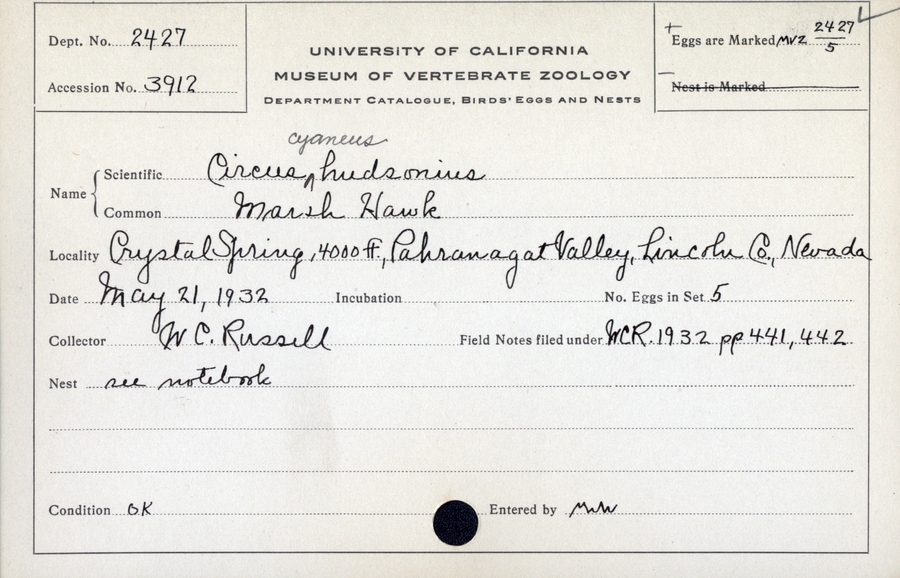 Dept. No. 2427
Accession No. 3912
UNIVERSITY OF CALIFORNIA
MUSEUM OF VERTEBRATE ZOOLOGY
DEPARTMENT CATALOGUE, BIRDS' EGGS AND NESTS
+ Eggs are Marked MVZ 2427/5
— Nest is Marked
cyaneus
Name { Scientific Circus ^ hudsonius
Common Marsh Hawk
Locality Crystal Spring, 4000 ft., Pahranagat Valley, Lincoln Co., Nevada
Date May 21, 1932 Incubation No. Eggs in Set 5
Collector W C. Russell Field Notes filed under WCR. 1932 pp 441, 442
Nest see notebook
Condition OK Entered by